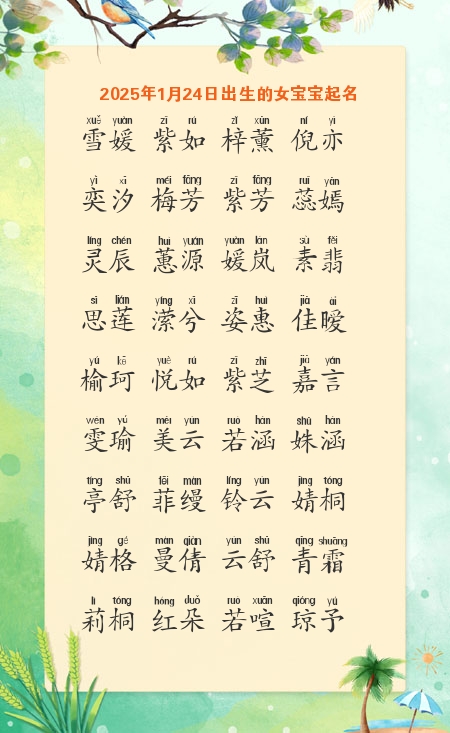 2025年1月24日出生的女宝宝起名
xuě yuàn zǐ rú zǐ xūn ní yì
雪媛 紫如 梓薰 倪亦
yì xī méi fāng zǐ fāng ruǐ yān
奕汐 梅芳 紫芳 蕊嫣
líng chén huì yuán yuàn lán sù fěi
灵辰 蕙源 媛岚 素翡
sī lián yíng xī zī huì jiā ài
思莲 潆兮 姿惠 佳暧
yú kē yuè rú zǐ zhī jiā yán
榆珂 悦如 紫芝 嘉言
wén yú měi yún ruò hán shū hán
雯瑜 美云 若涵 姝涵
tíng shū fēi màn líng yún jìng tóng
亭舒 菲缦 铃云 婧桐
jìng gé màn qiàn yún shū qīng shuāng
婧格 曼倩 云舒 青霜
lì tóng hóng duǒ ruò xuān qióng yú
莉桐 红朵 若喧 琼予